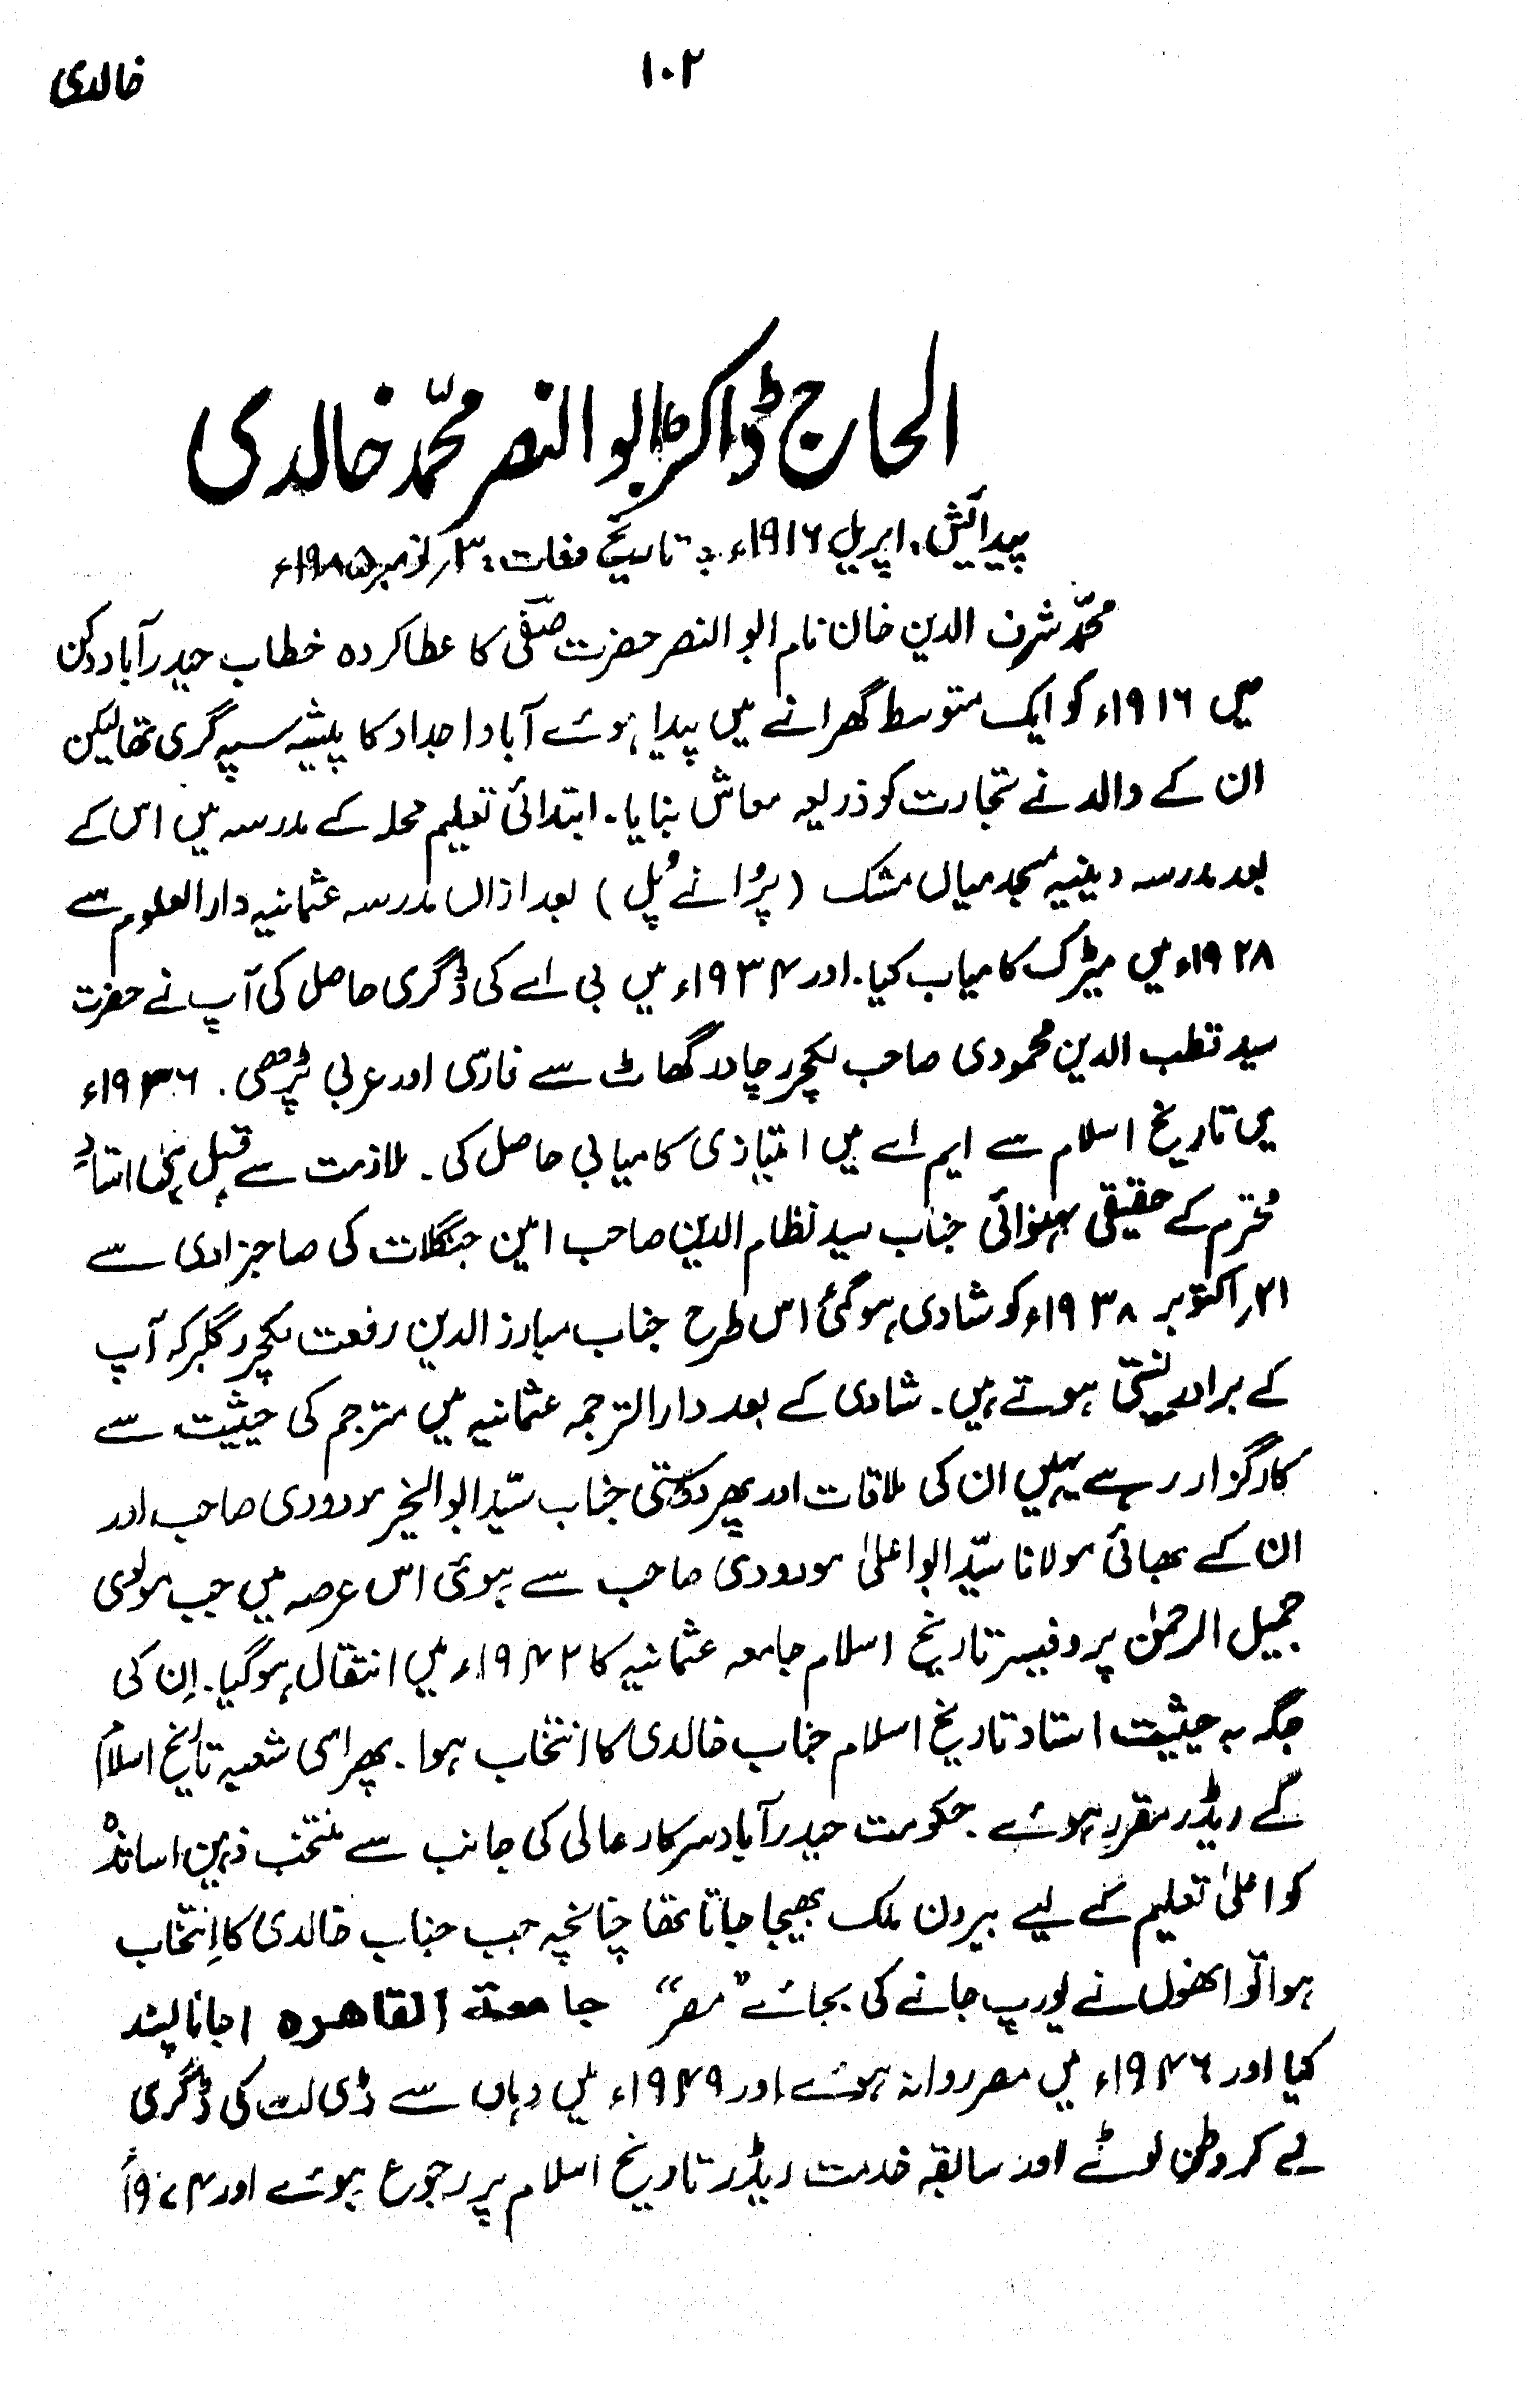 خالدی
۱۰۲
الحاج ڈاکٹر ابو النصر محمّد خالدی
پیدائش: اپریل ۱۹۱۶ء ؞ تاریخ وفات: ۳؍ نومبر ۱۹۸۵ء
محمّد شرف الدین خان نام ابو النصر حضرت صفی کا عطا کردہ خطاب حیدرآباد دکن
میں ۱۹۱۶ء کو ایک متوسط گھرانے میں پیدا ہوئے آبا و اجداد کا پیشہ سپہ گری تھا لیکن
ان کے والد نے تجارت کو ذریعہ معاش بنایا۔ ابتدائی تعلیم محلہ کے مدرسہ میں اس کے
بعد مدرسہ دینیہ مسجد میاں مشک (پُرانے پُل) بعد ازاں مدرسہ عثمانیہ دارالعلوم سے
۱۹۲۸ء میں میٹرک کامیاب کیا۔ اور ۱۹۳۴ء میں بی اے کی ڈگری حاصل کی آپ نے حضرت
سید قطب الدین محمودی صاحب لکچرر چادر گھاٹ سے فارسی اور عربی پڑھی۔ ۱۹۳۶ء
میں تاریخ اسلام سے ایم اے میں امتیازی کامیابی حاصل کی۔ ملازمت سے قبل ہی اپنے استادِ
محترم کے حقیقی بہنوائی جناب سید نظام الدین صاحب امین جنگلات کی صاحبزادی سے
۲۱؍ اکتوبر ۱۹۳۸ء کو شادی ہوگئی اس طرح جناب مبارز الدین رفعت لکچرر گلبرگہ آپ
کے برادرِ نسبتی ہوتے ہیں۔ شادی کے بعد دارالترجمہ عثمانیہ میں مترجم کی حیثیت سے
کارگزار رہے یہیں ان کی ملاقات اور پھر دوستی جناب سیّد ابوالخیر مودودی صاحب اور
ان کے بھائی مولانا سیّد ابو اعلیٰ مودودی صاحب سے ہوئی اس عرصہ میں جب مولوی
جمیل الرحمٰن پروفیسر تاریخ اسلام جامعہ عثمانیہ کا ۱۹۴۲ء میں انتقال ہوگیا۔ اِن کی
جگہ بہ حیثیت استاد تاریخ اسلام جناب خالدی کا انتخاب ہوا۔ پھر اسی شعبہ تاریخ اسلام
کے ریڈر مقرر ہوئے۔ حکومت حیدرآباد سرکار عالی کی جانب سے منتخب ذہین اساتذہ
کو اعلیٰ تعلیم کے لیے بیرون ملک بھیجا جاتا تھا چنانچہ جب جناب خالدی کا اِنتخاب
ہوا تو انھوں نے یورپ جانے کی بجائے "مصر" جامعة القاهره ا جانا پسند
کیا اور ۱۹۴۶ء میں مصر روانہ ہوئے اور ۱۹۴۹ء میں وہاں سے ڈی لٹ کی ڈگری
لے کر وطن لوٹے اور سابقہ خدمت ریڈر تاریخ اسلام پر رجوع ہوئے اور ۱۹۷۴ء